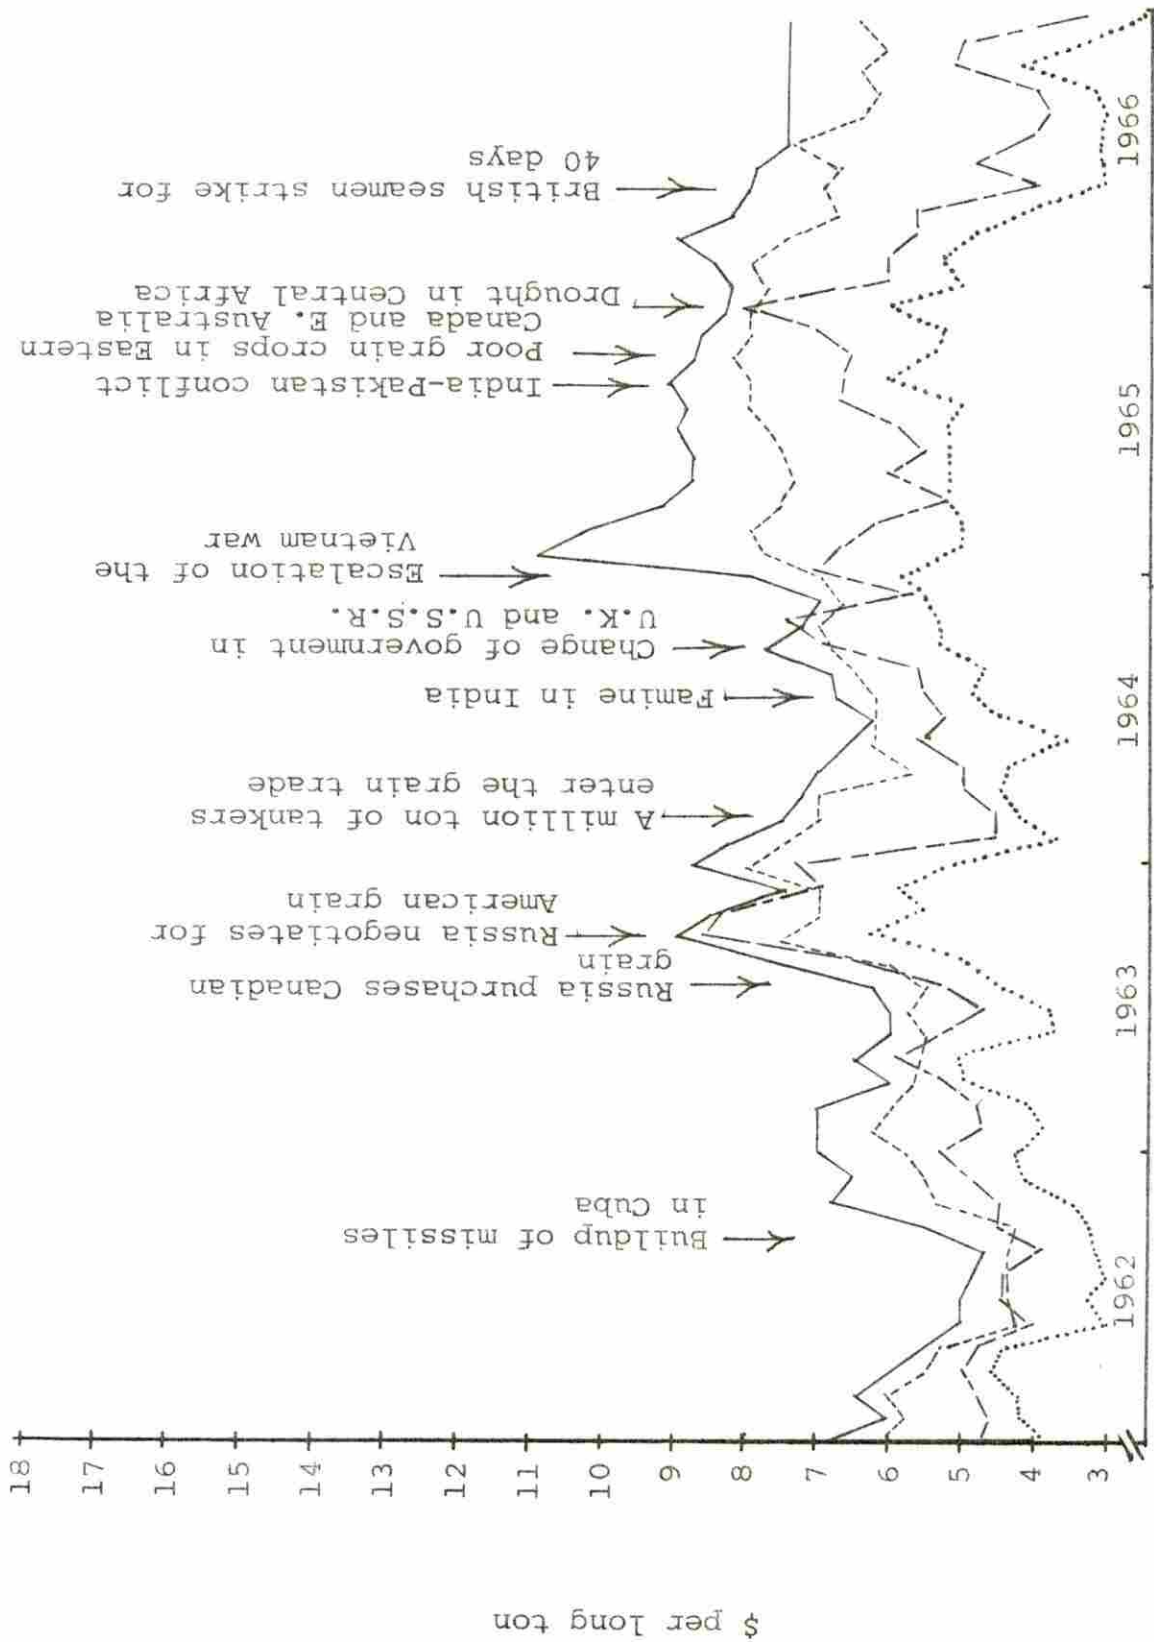 18
17
16
15
14
13
12
11
10
9
8
7
6
5
4
3
$ per long ton
1962
1963
1964
1965
1966
Buildup of missiles
in Cuba
Russia purchases Canadian
grain
Russia negotiates for
American grain
A million ton of tankers
enter the grain trade
Famine in India
Change of government in
U.K. and U.S.S.R.
Escalation of the
Vietnam war
India-Pakistan conflict
Poor grain crops in Eastern
Canada and E. Australia
Drought in Central Africa
British seamen strike for
40 days